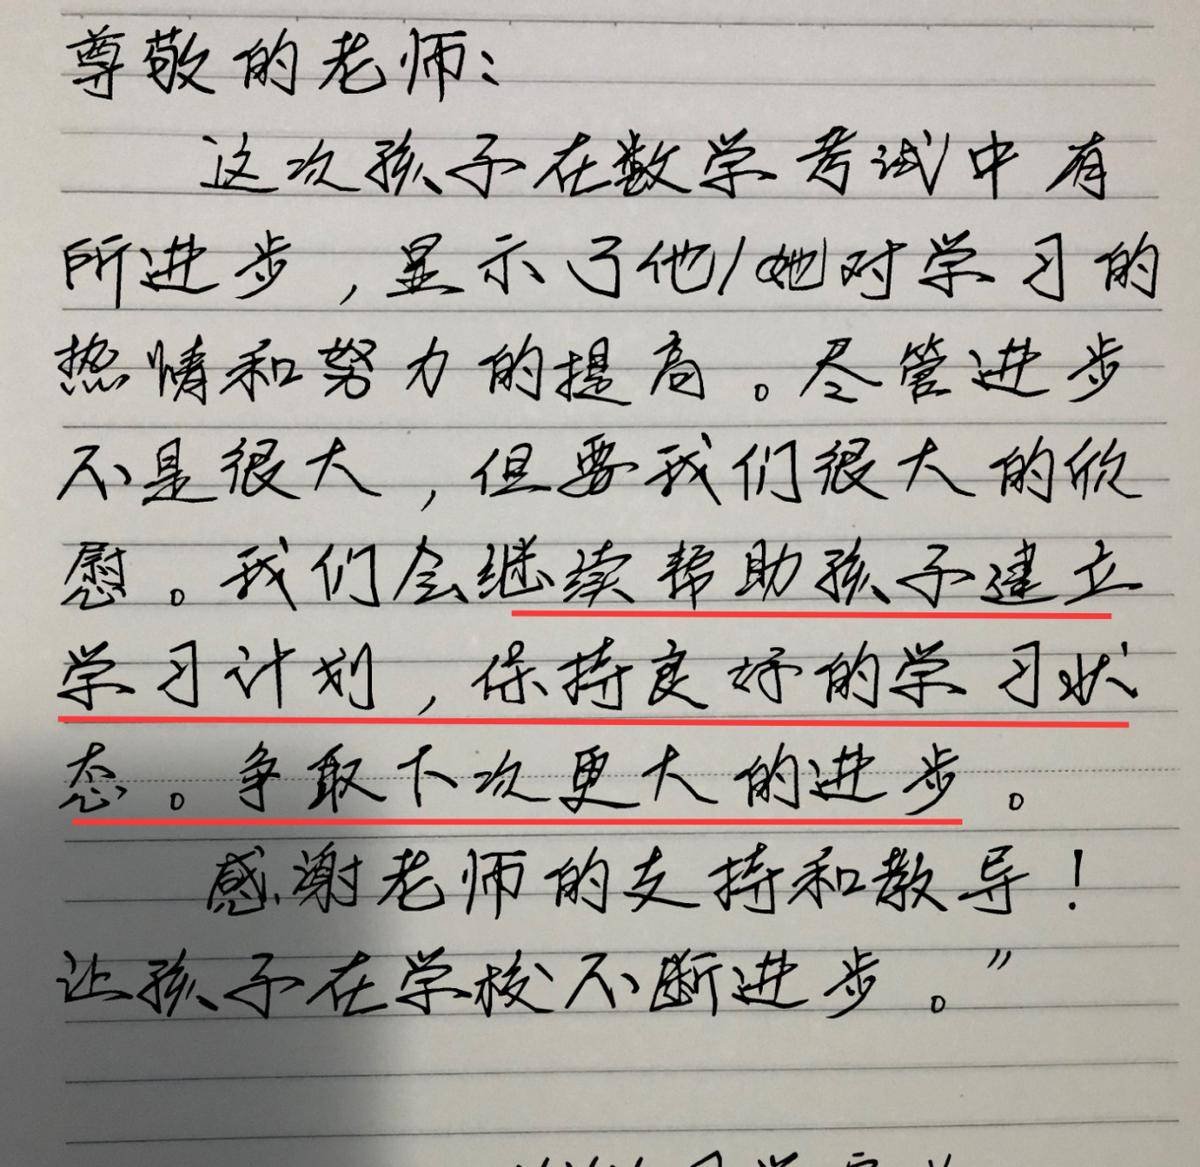 尊敬的老师：
这次孩子在数学考试中有
所进步，显示了他/她对学习的
热情和努力的提高。尽管进步
不是很大，但要我们很大的欣
慰。我们会继续帮助孩子建立
学习计划，保持良好的学习状
态。争取下次更大的进步。
感谢老师的支持和教导！
让孩子在学校不断进步。”